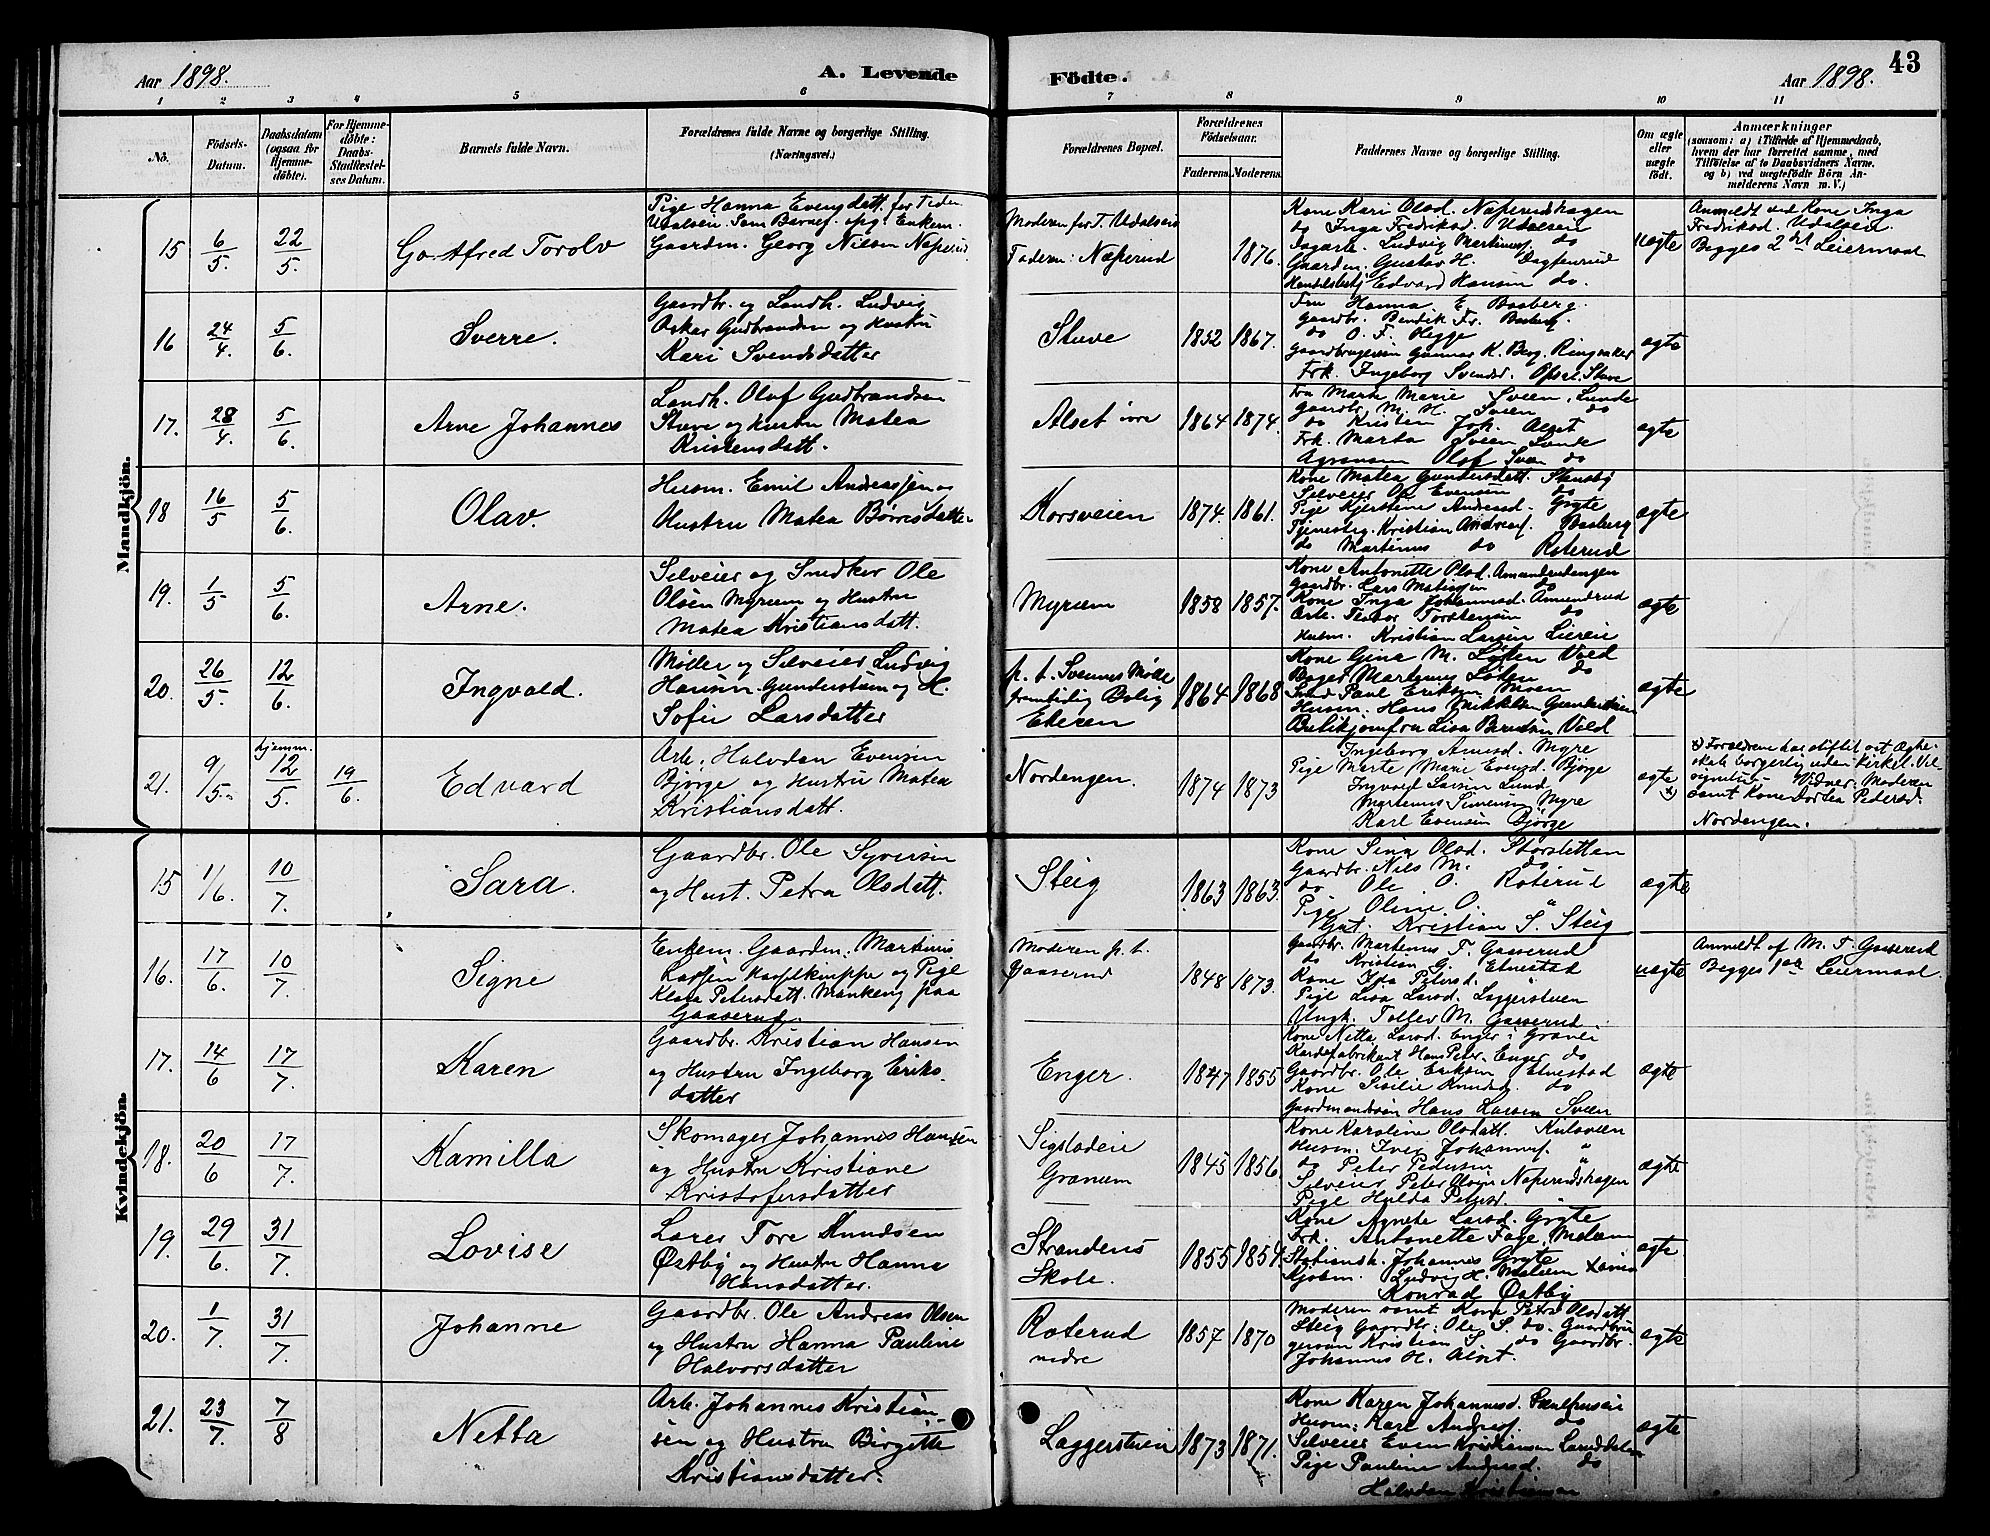 Aar 1898.
A. Levende
Födte.
Aar 1898.
43
1 2 3 4 5 6 7 8 9 10 11
No.
Födsels-
Datum.
Daabsdatum
(ogsaa for
Hjemme-
döbte).
For Hjemme-
döbte:
Daabs-
Stadfæstel-
ses Datum.
Barnets fulde Navn.
Forældrenes fulde Navne og borgerlige Stilling.
(Næringsvei.)
Forældrenes Bopæl.
Forældrenes
Födselsaar.
Faderens. Moderens.
Faddernes Navne og borgerlige Stilling.
Om ægte
eller
uægte
födt.
Anmærkninger
(saasom: a) i Tilfælde af Hjemmedaab,
hvem der har forrettet samme, med
Tilföielse af to Daabsvidners Navne,
og b) ved uægtefödte Börn An-
melderens Navn m. V.)
Mandkjön.
15 6/5. 22/5. Gotfred Torolv
Pige Hanna Evensdatt. for Tiden
Udalseie. Som Barnef. opg. Enkem.
Gaardm. Georg Nilsen Næperud.
Moderen for T. Udalseie
Faderen: Næperud
1876.
Kone Kari Olsd. Næperudhagen
do Inga Fredriksd. Udalseie
Dagarb. Ludvig Martinus. do
Gaardm. Gustav H.
Handelsbetj. Edvard Hansen do.
uægte
Anmeldt ved Kone Inga
Fredriksd. Udalseie.
Begges 2det Leiermaal
16 24/4. 5/6. Sverre.
Gaardbr. og Landh. Ludvig
Oskar Gudbrandsen og Hustru
Kari Svendsdatter
Stuve
1852 1867.
Fru Hanna E. Basberg.
Gaardbr. Bendik Fr. Basberg.
do O. F. Hegge
Gaardbrugersøn Gunnar K. Berg. Ringsaker
Frk. Ingeborg Svendsd. Opsal. Stuve
ægte
17. 28/4. 5/6. Arne Johannes
Landh. Olaf Gudbrandsen
Stuve og Hustru Matea
Kristensdatt.
Alset øvre
1864 1874.
Fru Marte Marie Sveen, Lunde
Gaardbr. M. H. Sveen do
do Kristen Joh. Alset
Frk. Marta Sveen Lunde
Agronom Olaf Sveen do
ægte
18 16/5 5/6. Olav.
Husm. Emil Andreassen og
Hustru Matea Børresdatter
Korsveien
1874. 1861.
Kone Matea Gundersdatt. Stensby
Selveier Ole Evensen do
Pige Kjerstine Andreasd. Gryte
Tjenesteg. Kristian Andreas. Basberg
do Martinus do Roterud
ægte
19. 1/5 5/6. Arne.
Selveier og Snedker Ole
Olsen Myrum og Hustru
Matea Kristiansdatt.
Myrum
1858 1857.
Kone Antonette Olsd. Amundrudengen
Gaardbr. Lars Matisen do
Kone Inga Johannesd. Amundrud
Arb. Torstensen do
Husm. Kristian Larsen Liereie
ægte
20. 26/5. 12/6. Ingvald.
Møller og Selveier Ludvig
Hansen Gunderstuen og H.
Sofie Larsdatter
p. t. Svennes Mølle
fremtidig Bolig
Ekeren
1864 1868
Kone Gina M. Løken Vold
Bager Martinus Løken do
Smed Paul Eriksen Moen
Husm. Hans Mikkelsen
Butikjomfru Lisa Berntsen Vold
ægte
21. 9/5. hjemm. 12/5. 19/6. Edvard
Arb. Halvdan Evensen
Bjørge og Hustru Matea
Kristiansdatt.
Nordengen.
1874 1873
Ingeborg Arnesd. Myre
Pige Marte Marie Evensd. Bjørge
Ingvald Larsen Lund
Martinus Simensen Myre
Karl Evensen Bjørge
ægte
x)
x) Forældrene har stiftet sit Ægte-
skab borgerlig uden kirkel. Vel-
signelse. Vidner: Moderen
samt Kone Dortea Pedersd.
Nordengen.
Kvindekjön.
15 1/6. 10/7. Sara.
Gaardbr. Ole Syversen
og Hust. Petra Olsdatt.
Steig
1863 1863.
Kone Sina Olsd. Storsletten
Gaardbr. Nils M. do
do Ole O. Roterud
Pige Oline O. "
Gut. Kristian S. Steig
ægte
16. 17/6. 10/7. Signe
Enkem. Gaardm. Martinus
Larsen og Pige
Klara Petersdatt. Mankeng paa
Gaaserud.
Moderen p. t.
Gaaserud
1848 1873.
Gaardbr. Martinus T. Gaaserud
do Kristian G. Elnestad
Kone Petersd.
Pige Lisa Larsd. Laggerstuen
Ungk. Tollev M. Gaaserud
uægte
Anmeldt af M. T. Gaaserud
Begges 1ste Leiermaal.
17. 14/6 17/7. Karen
Gaardbr. Kristian Hansen
og Hustru Ingeborg Eriks-
datter
Enger.
1847 1855
Kone Netta Larsd. Enger i Gravei
Kardefabrikant Hans Peter. Enger do
Gaardbr. Ole Eriksen Elnestad
Kone Sisilie Knudsd. do
Gaardmandssøn Hans Larsen Sveen
ægte
18. 20/6 17/7. Kamilla
Skomager Johannes Hansen
og Hustru Kristiane
Kristofersdatter
Sigstadeie
Granum
1845 1856.
Kone Karoline Olsdatt. Kulsveen
Husm. Iver Johannes. "
do Peter Pedersen "
Selveier Peter Olsen Næperudshagen
Pige Hulda Petersd.
ægte
19. 29/6. 31/7. Lovise
Lærer Tore Knudsen
Østby og Hustru Hanna
Hansdatter.
Strandens
Skole.
1855 1854.
Kone Agnete Larsd. Gryte
Frk. Antonette Foge, Melum
Stationsk. Johannes Gryte
Kjøbm. Ludvig H. Melum
Konrad Østby
ægte
20. 1/7. 31/7. Johanne
Gaardbr. Ole Andreas Olsen
og Hustru Hanna Pauline
Halvorsdatter
Roterud
nedre
1857 1870
Moderen samt Kone Petra Olsdatt.
Steig Gaardbr. Ole S. do. Gaardbru-
gersøn Kristian S. do Gaardbr.
Johannes H. Alset.
ægte
21. 23/7. 7/8 Netta
Arb. Johannes Kristian-
sen og Hustru Birgitte
Kristiansdatter.
Laggerstuen
1873 1871.
Kone Karen Johannesd.
Husm. Karl Andreas. do
Selveier Even Kristiansen
Pige Pauline Andersd. do
Halvdan Kristiansen
ægte